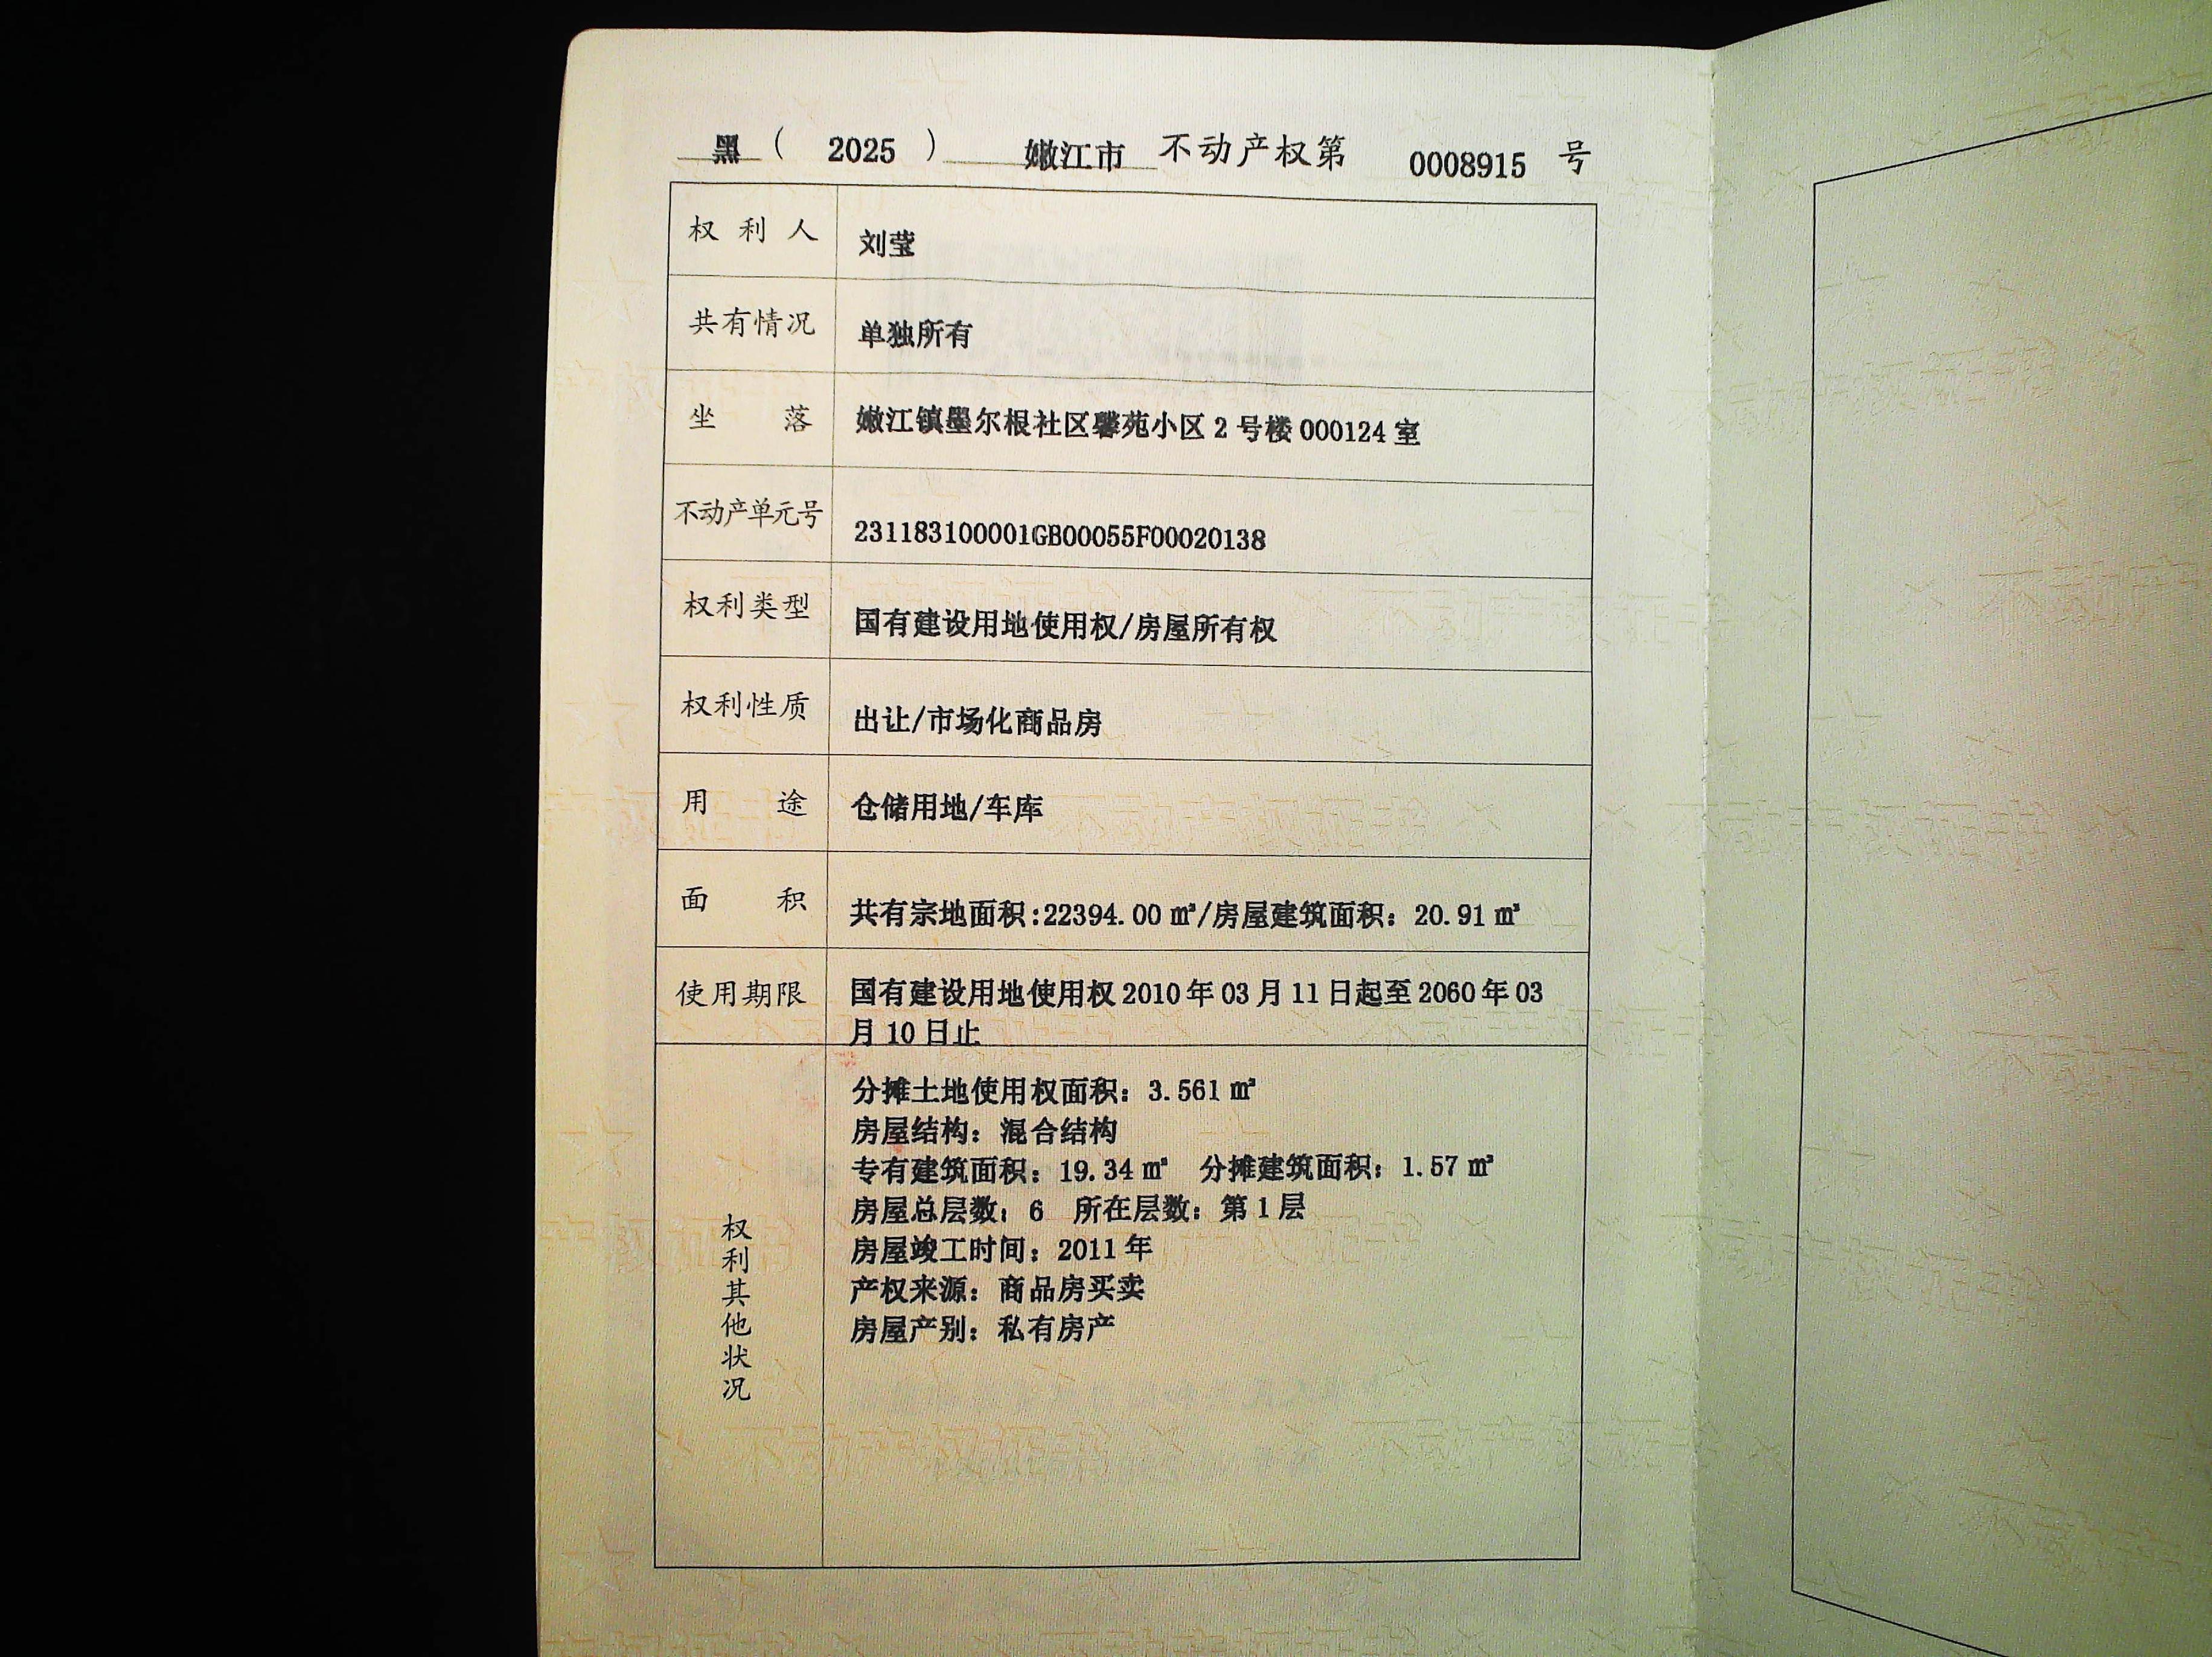 黑（2025）嫩江市不动产权第0008915号
权利人 刘莹
共有情况 单独所有
坐落 嫩江镇墨尔根社区馨苑小区2号楼000124室
不动产单元号 231183100001GB00055F00020138
权利类型 国有建设用地使用权/房屋所有权
权利性质 出让/市场化商品房
用途 仓储用地/车库
面积 共有宗地面积:22394.00㎡/房屋建筑面积：20.91㎡
使用期限 国有建设用地使用权2010年03月11日起至2060年03
月10日止
权利其他状况
分摊土地使用权面积：3.561㎡
房屋结构：混合结构
专有建筑面积：19.34㎡ 分摊建筑面积：1.57㎡
房屋总层数：6 所在层数：第1层
房屋竣工时间：2011年
产权来源：商品房买卖
房屋产别：私有房产